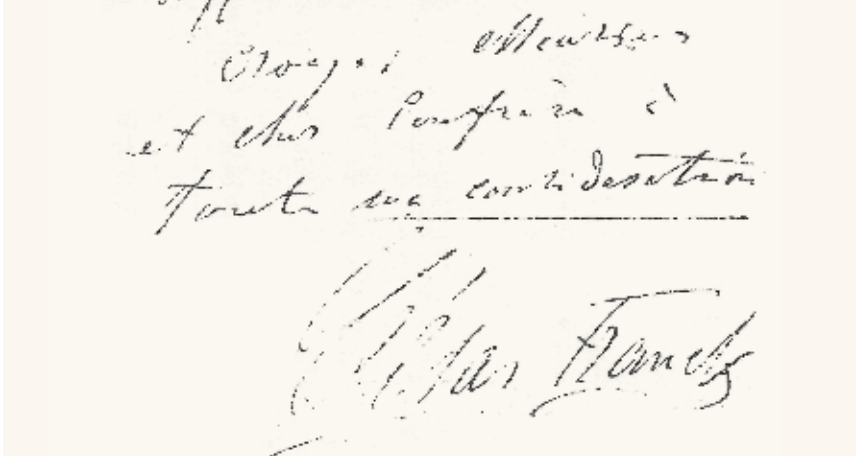 Croyez Monsieur
et cher Confrère à
toute ma considération
César Franck